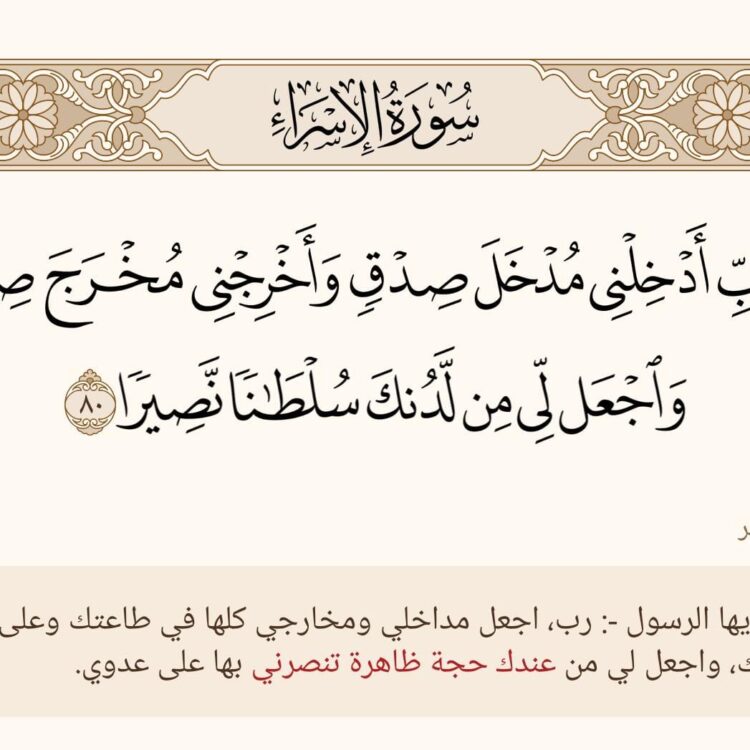 سُورَةُ الإِسْرَاءِ
أَدْخِلْنِى مُدْخَلَ صِدْقٍ وَأَخْرِجْنِى مُخْرَجَ
وَٱجْعَل لِّى مِن لَّدُنكَ سُلْطَـٰنًا نَّصِيرًا ٨٠
الرسول -: رب، اجعل مداخلي ومخارجي كلها في طاعتك وعلى
واجعل لي من عندك حجة ظاهرة تنصرني بها على عدوي.